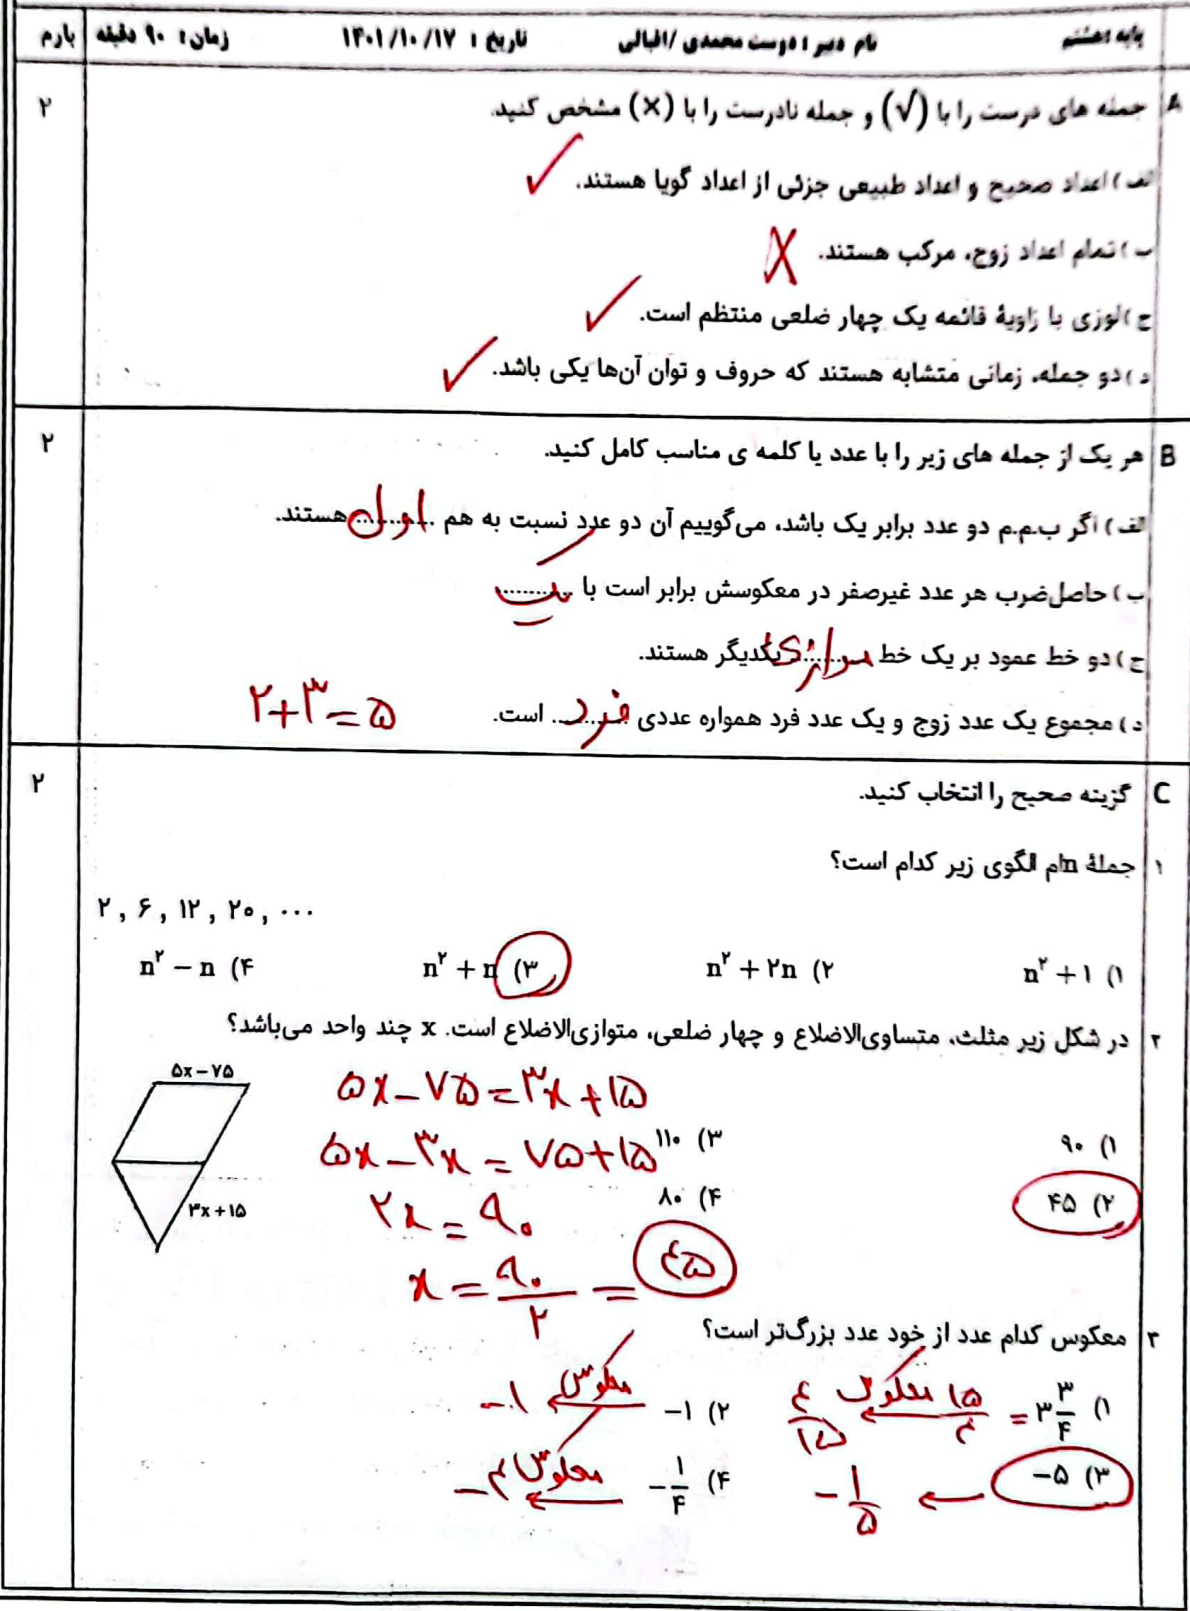 پایه هشتم نام دبیر: دوست محمدی /اقبالی تاریخ : ۱۴۰۱/۱۰/۱۷ زمان: ۹۰ دقیقه بارم
A جمله های درست را با (√) و جمله نادرست را با (×) مشخص کنید. ۲
الف) اعداد صحیح و اعداد طبیعی جزئی از اعداد گویا هستند. ✓
ب) تمام اعداد زوج، مرکب هستند. X
ج) لوزی با زاویهٔ قائمه یک چهار ضلعی منتظم است. ✓
د) دو جمله، زمانی متشابه هستند که حروف و توان آن‌ها یکی باشد. ✓
B هر یک از جمله های زیر را با عدد یا کلمه ی مناسب کامل کنید. ۲
الف) اگر ب.م.م دو عدد برابر یک باشد، می‌گوییم آن دو عدد نسبت به هم ...اول... هستند.
ب) حاصل‌ضرب هر عدد غیرصفر در معکوسش برابر است با ...یک...
ج) دو خط عمود بر یک خط ...موازی... یکدیگر هستند.
د) مجموع یک عدد زوج و یک عدد فرد همواره عددی ...فرد... است. ۲+۳=۵
C گزینه صحیح را انتخاب کنید. ۲
۱ جملهٔ nام الگوی زیر کدام است؟
۲ , ۶ , ۱۲ , ۲۰ , ...
۱) n²+۱ ۲) n²+۲n ۳) n²+n ۴) n²−n
۲ در شکل زیر مثلث، متساوی‌الاضلاع و چهار ضلعی، متوازی‌الاضلاع است. x چند واحد می‌باشد؟
۵x−۷۵
۵x−۷۵=۳x+۱۵
۱) ۹۰ ۳) ۱۱۰
۵x−۳x=۷۵+۱۵
۲) ۴۵ ۴) ۸۰
۳x+۱۵
۲x=۹۰
x=۹۰/۲=۴۵
۳ معکوس کدام عدد از خود عدد بزرگ‌تر است؟
۱) ۳ ۳/۴ = ۱۵/۴ معکوس ۴/۱۵ ۲) −۱ معکوس −۱
۳) −۵ ← −۱/۵ ۴) −۱/۴ معکوس −۴